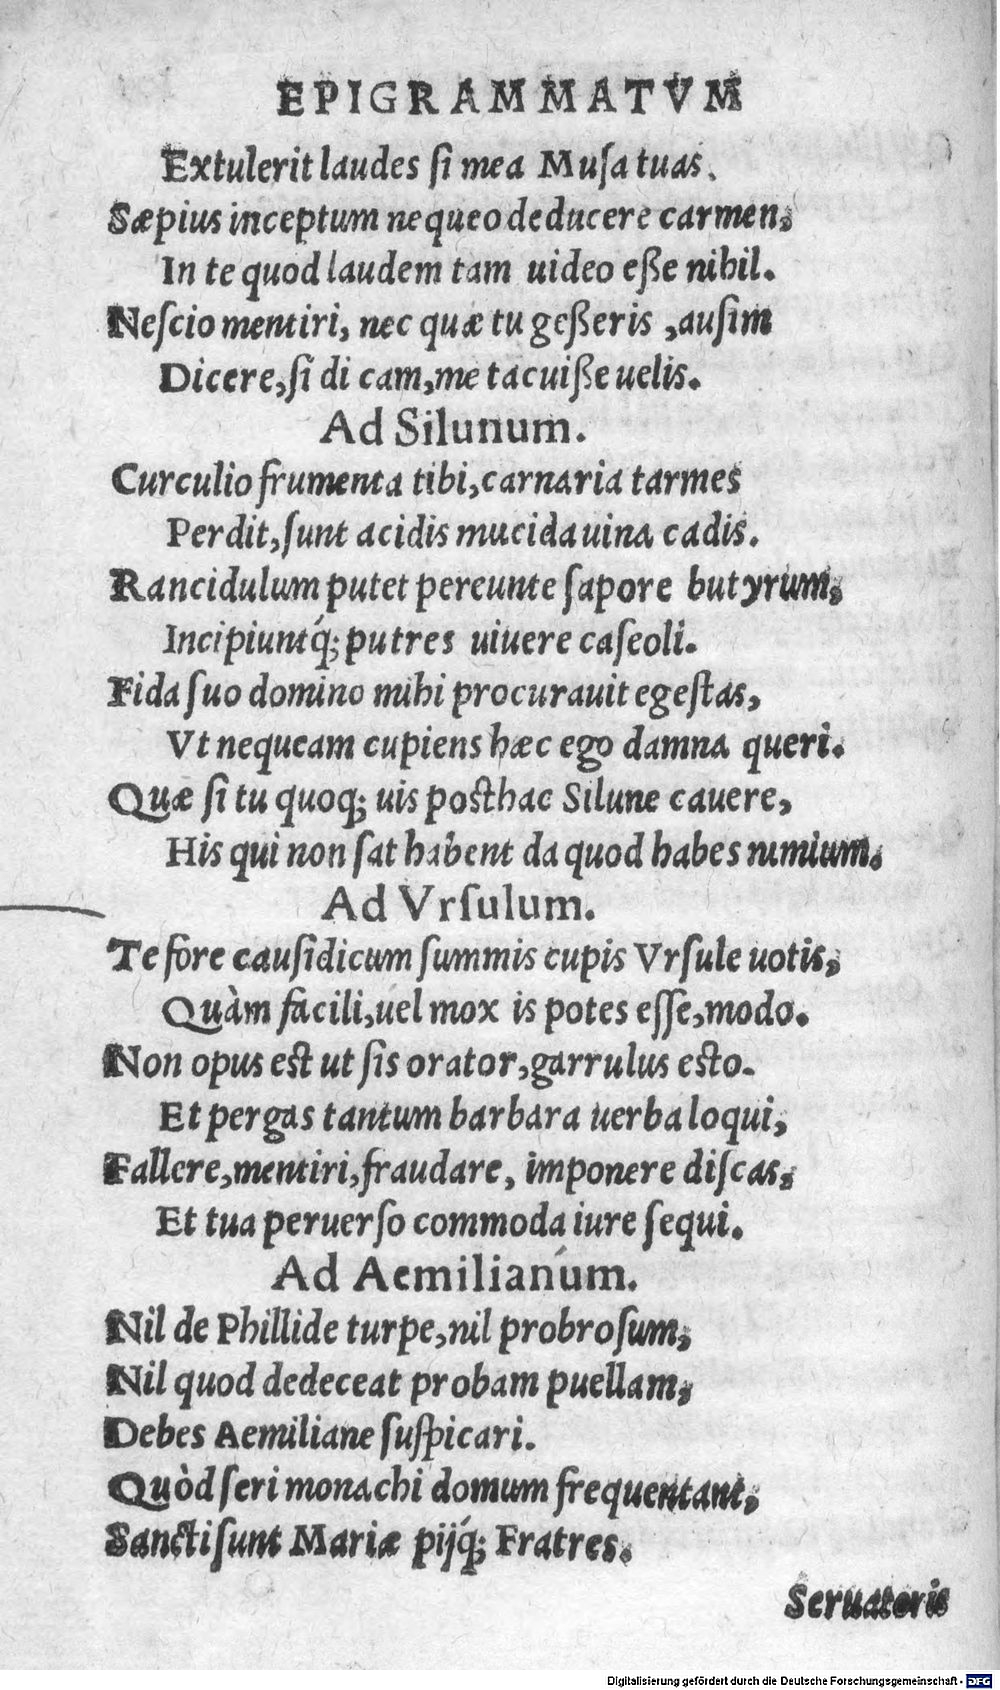 EPIGRAMMATVM
Extulerit laudes ſi mea Muſa tuas.
Sæpius inceptum nequeo deducere carmen,
In te quod laudem tam uideo eſſe nihil.
Neſcio mentiri, nec quæ tu geſſeris, auſim
Dicere, ſi dicam, me tacuiſſe uelis.
Ad Silunum.
Curculio frumenta tibi, carnaria tarmes
Perdit, ſunt acidis mucida uina cadis.
Rancidulum putet pereunte ſapore butyrum,
Incipiuntq́; putres uiuere caſeoli.
Fida ſuo domino mihi procurauit egeſtas,
Vt nequeam cupiens hæc ego damna queri.
Quæ ſi tu quoq; uis poſthac Silune cauere,
His qui non ſat habent da quod habes nimium.
Ad Vrſulum.
Te fore cauſidicum ſummis cupis Vrſule uotis,
Quàm facili, uel mox is potes eſſe, modo.
Non opus eſt ut ſis orator, garrulus eſto.
Et pergas tantum barbara uerba loqui,
Fallere, mentiri, fraudare, imponere diſcas,
Et tua peruerſo commoda iure ſequi.
Ad Aemilianum.
Nil de Phillide turpe, nil probroſum,
Nil quod dedeceat probam puellam,
Debes Aemiliane ſuſpicari.
Quòd ſeri monachi domum frequentant,
Sancti ſunt Mariæ pijq́; Fratres.
Seruatoris
Digitalisierung gefördert durch die Deutsche Forschungsgemeinschaft - DFG